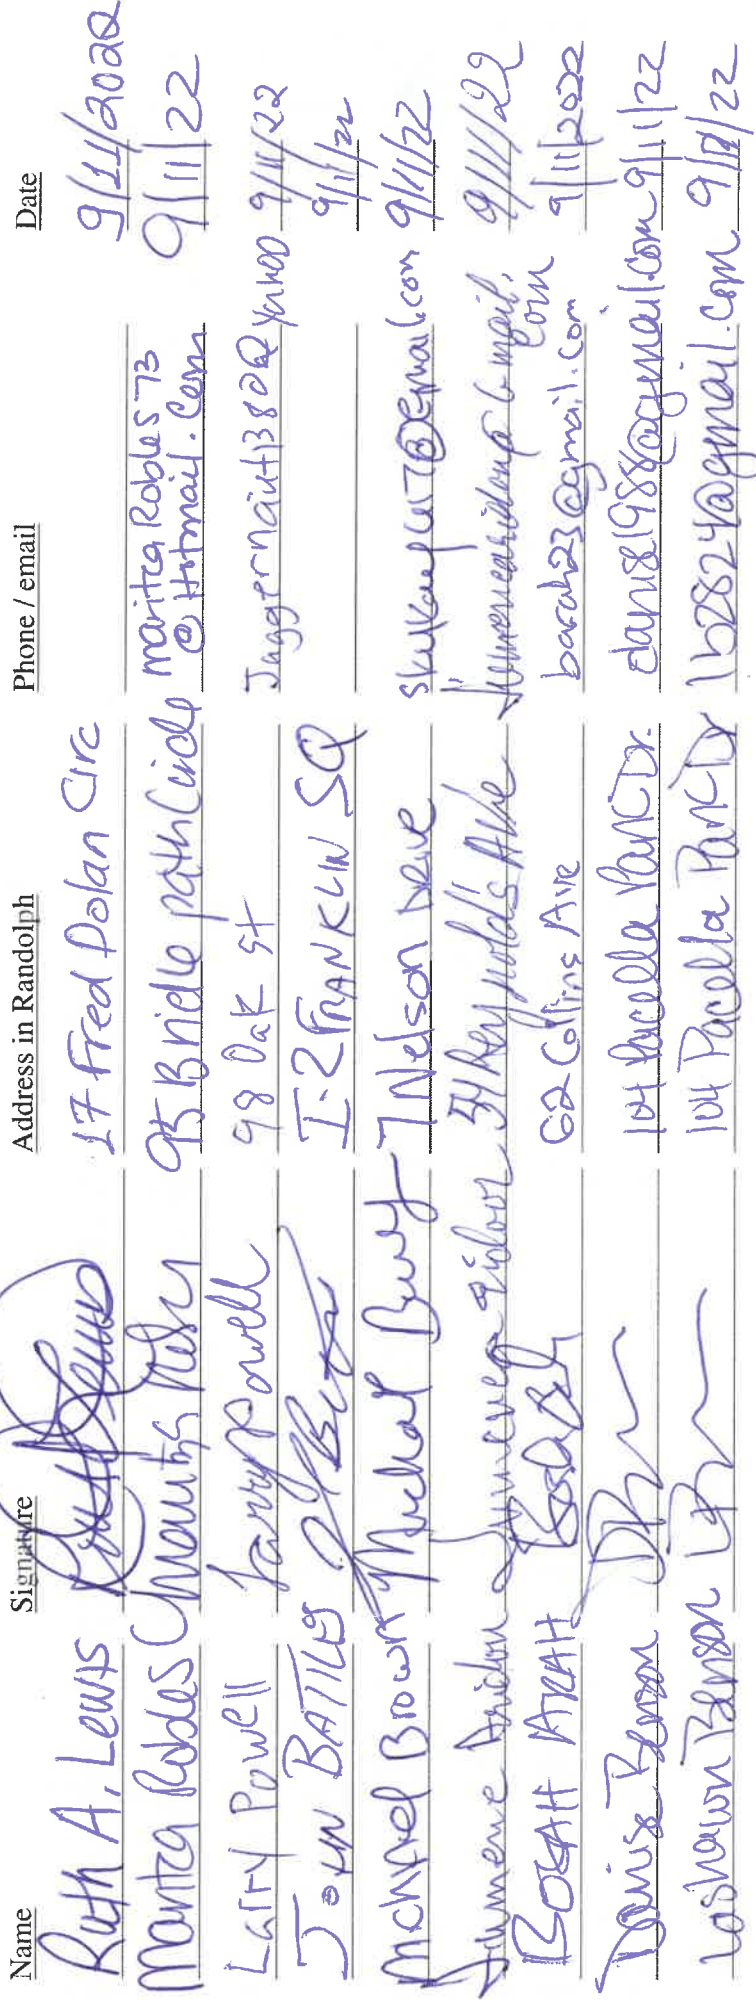 Name Signature Address in Randolph Phone / email Date
Ruth A. Lewis 17 Fred Dolan Circ 9/11/2022
Maritza Robles 95 Bridle path Circle maritza Robles 73
@ Hotmail. Com 9/11/22
Larry Powell Larry Powell 98 Oak st Juggernaut1382@ Yahoo 9/11/22
JOHN BATTLES 1-2 FRANKLIN SQ 9/11/22
Michael Brown Michael 7 Nelson Drive 9/11/22
54 Reynolds Ave 9/11/22
BOSAH ARAH 62 Collins Ave barah23@gmail.com 9/11/2022
Danise Benson 104 Pacella Park Dr. danise1988@gmail.com 9/11/22
Lashawn Benson 104 Pacella Park Dr lb2824@gmail.com